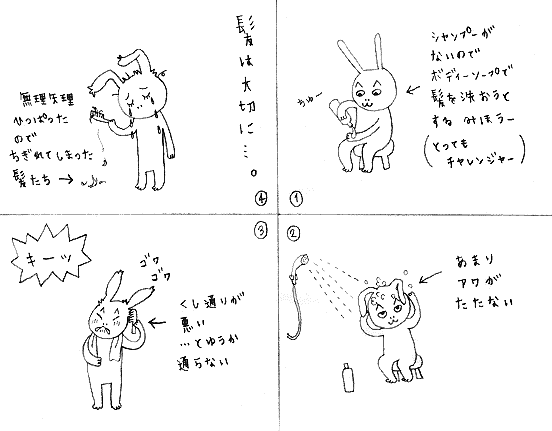 シャンプーが
ないので
ボディーソープで
髪を洗おうと
する みほうー
(とっても
チャレンジャー)
ちゅー
①
②
あまり
アワが
たたない
③
キーッ
ゴワ
ゴワ
くし通りが
悪い
…とゆうか
通らない
髪は大切に…。
無理矢理
ひっぱった
ので
ちぎれてしまった
髪たち →
④